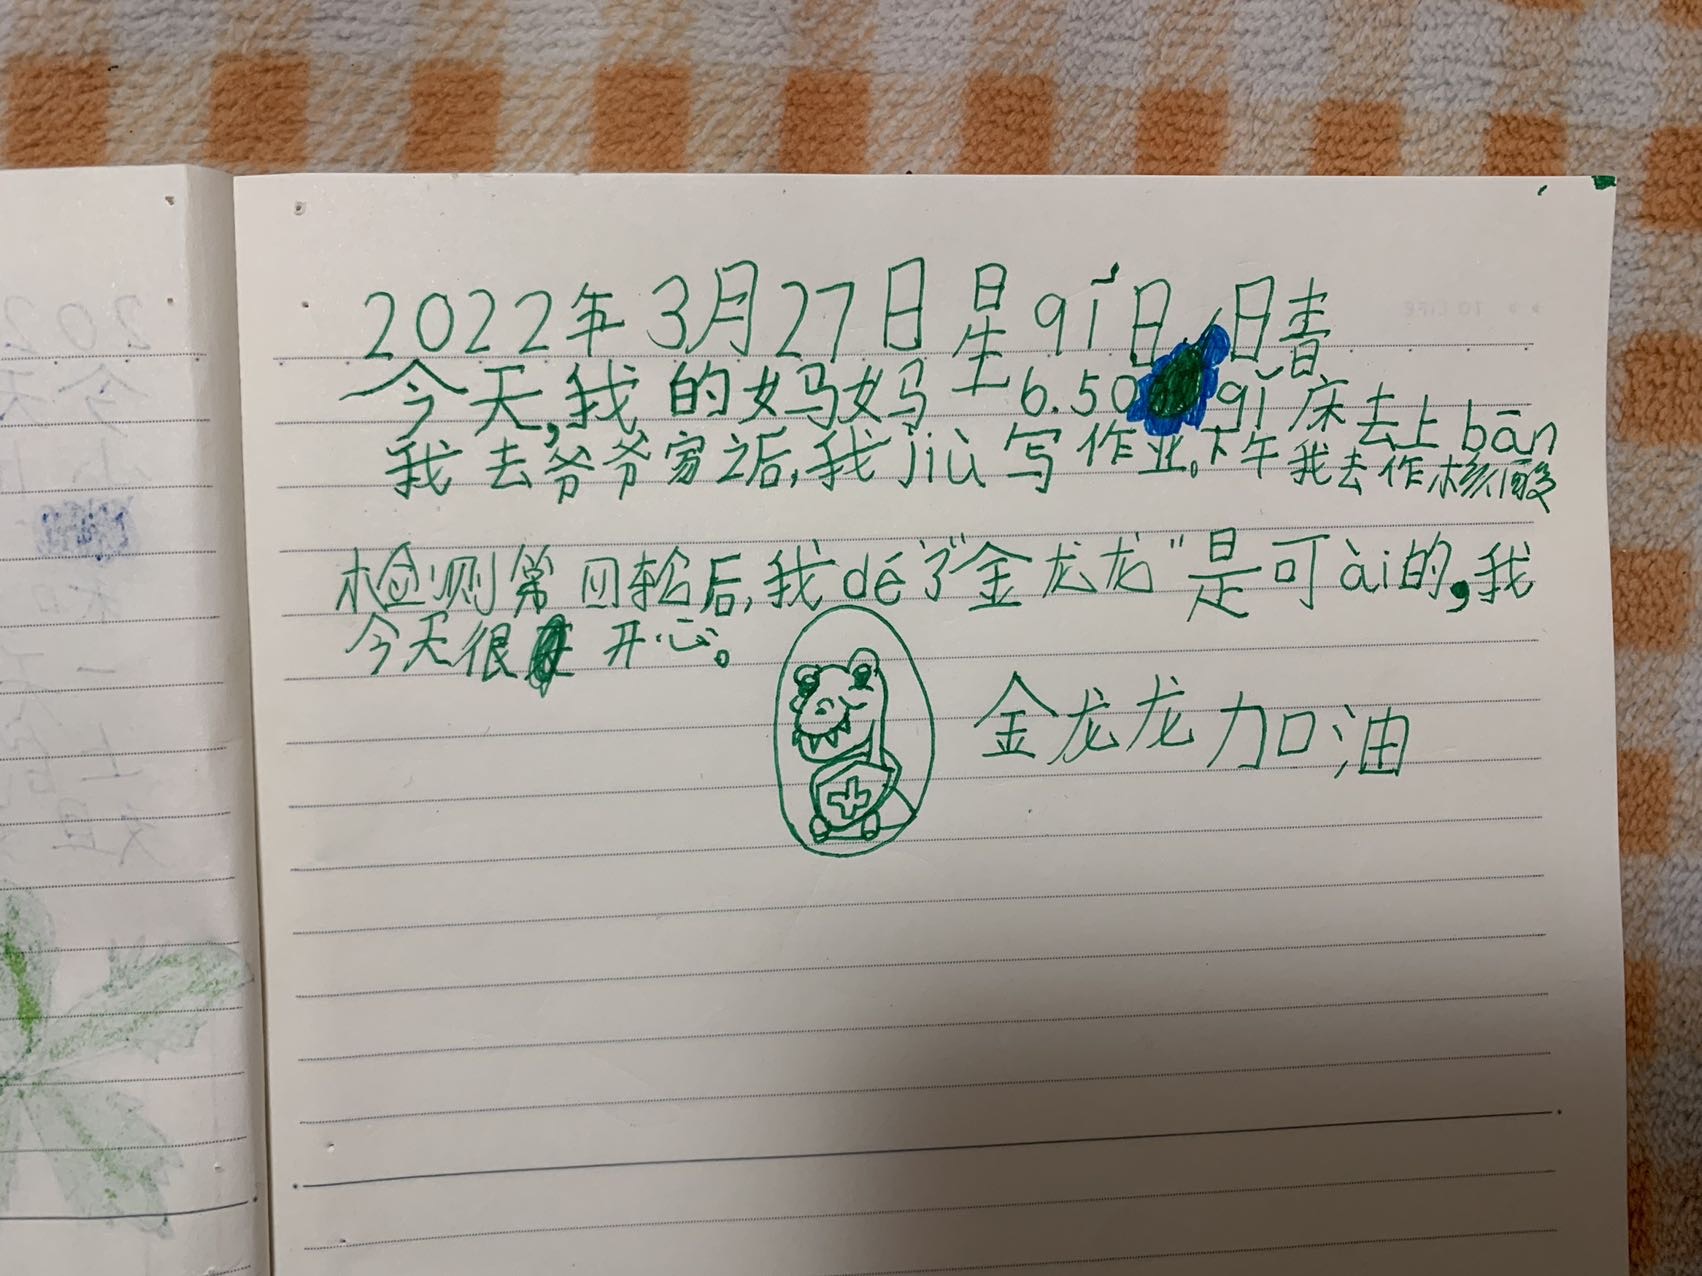 2022年3月27日星qī日,晴
今天,我的妈妈6.50qǐ床去上bān
我去爷爷家之后,我jiù写作业。下午我去作核酸
检测第四轮后,我dé了“金龙龙”是可ài的,我
今天很开心。
金龙龙加油